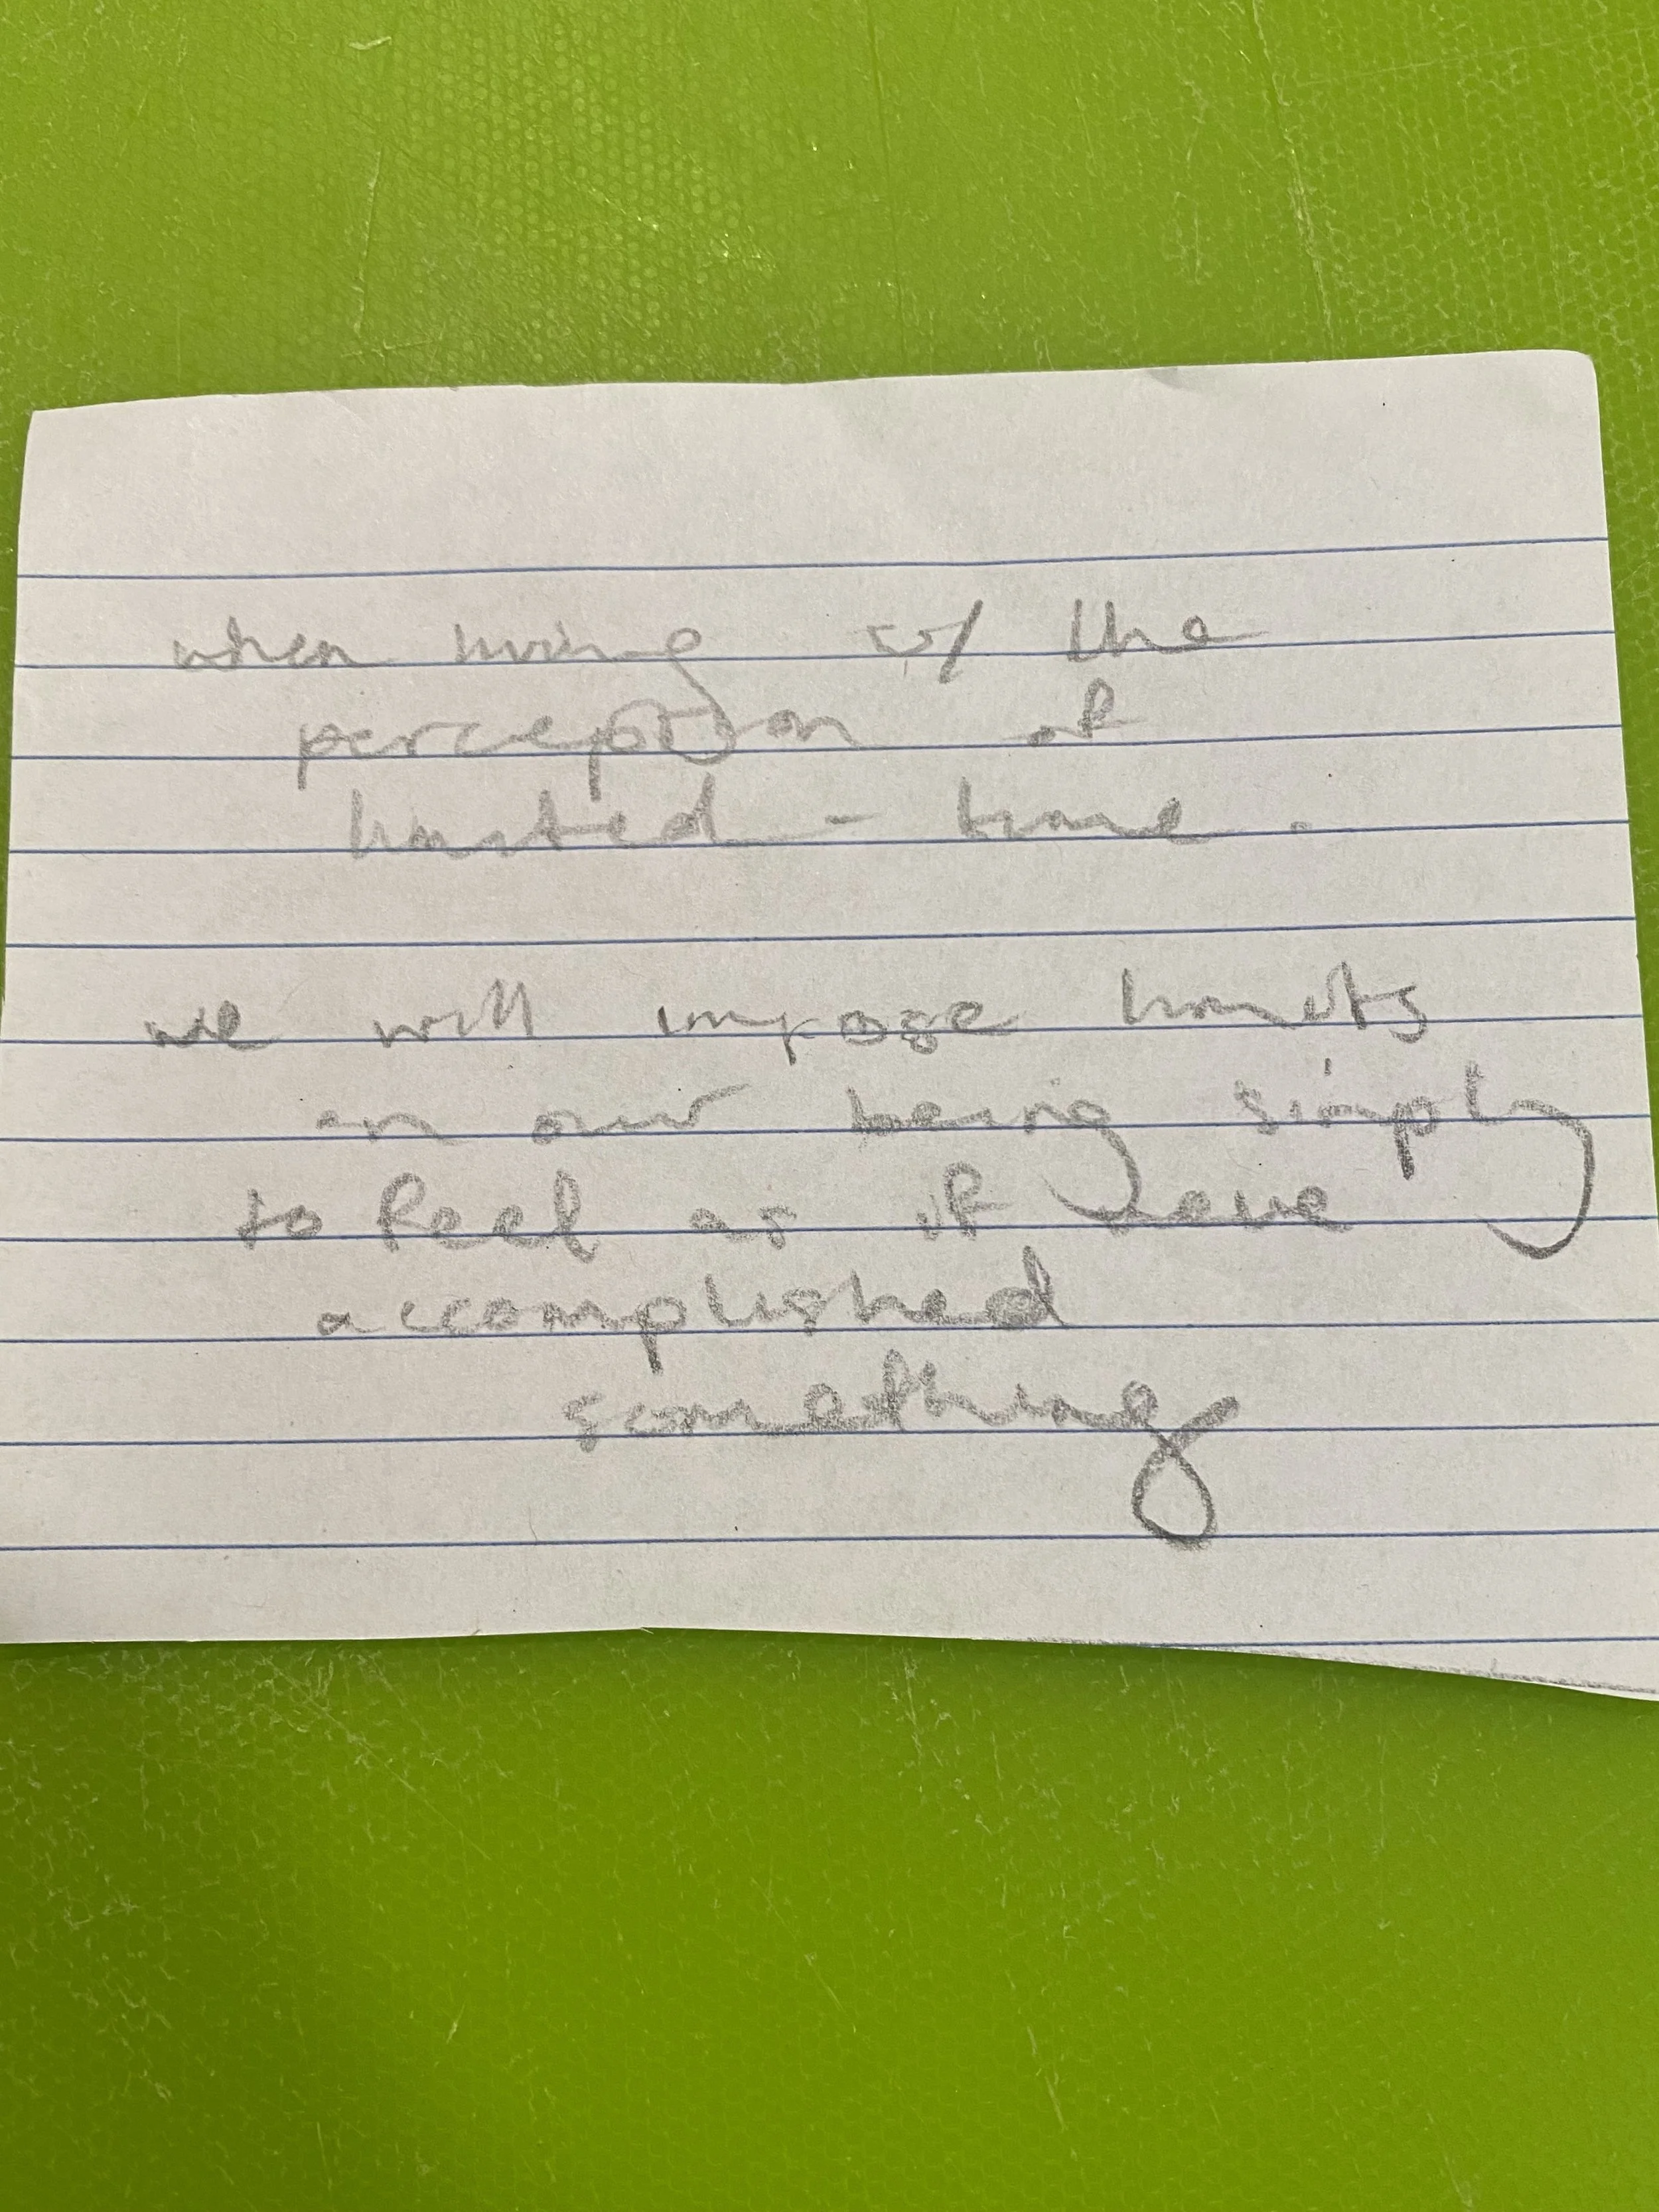 when living w/ the
perception of
limited - time.
we will impose limits
on our being simply
to feel as if have
accomplished
something